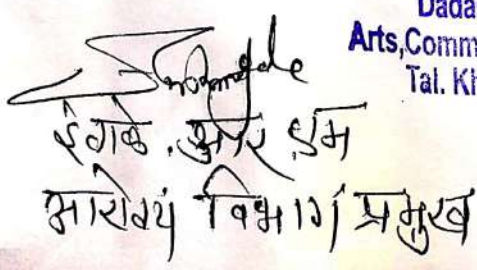 Dada
Arts,Comm
Tal. Kh
इंगळे . आर एम
आरोग्य विभाग प्रमुख